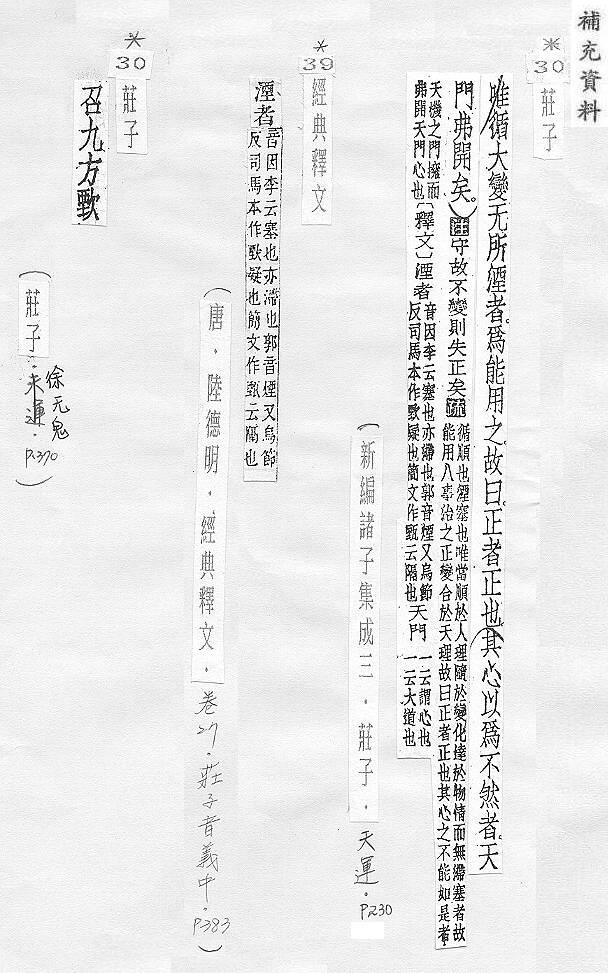 補充資料
*
30
莊子
唯循大變无所湮者。爲能用之。故曰。正者正也。(其心以爲不然者。天
門弗開矣。)注守故不變則失正矣疏
循順也湮塞也唯當順於人理隨於變化達於物情而無滯塞者故
能用八事治之正變合於天理故曰正者正也其心之不能如是者
天機之門擁而
弗開天門心也
〔釋文〕湮者
音因李云塞也亦滯也郭音煙又烏節
反司馬本作歅疑也簡文作甄云隔也
天門
一云謂心也
一云大道也
(新編諸子集成三.莊子.天運。P230
*
39
經典釋文
湮者
音因李云塞也亦滯也郭音煙又烏節
反司馬本作歅疑也簡文作甄云隔也
(唐.陸德明.經典釋文.卷27.莊子音義中.P383)
*
30
莊子
召九方歅
(莊子.天運.P.370)
徐无鬼